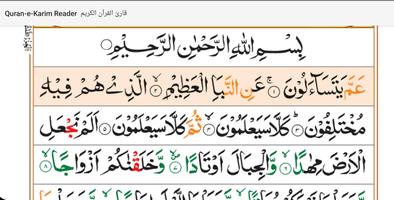 Quran-e-Karim Reader قارئ القرآن الكريم
بِسْمِ اللهِ الرَّحْمٰنِ الرَّحِيْمِ
عَمَّ يَتَسَآءَلُوْنَ ۝١ عَنِ النَّبَاِ الْعَظِيْمِ ۝٢ الَّذِيْ هُمْ فِيْهِ
مُخْتَلِفُوْنَ ۝٣ كَلَّا سَيَعْلَمُوْنَ ۝٤ ثُمَّ كَلَّا سَيَعْلَمُوْنَ ۝٥ اَلَمْ نَجْعَلِ
الْاَرْضَ مِهٰدًا ۝٦ وَّالْجِبَالَ اَوْتَادًا ۝٧ وَّخَلَقْنٰكُمْ اَزْوَاجًا ۝٨